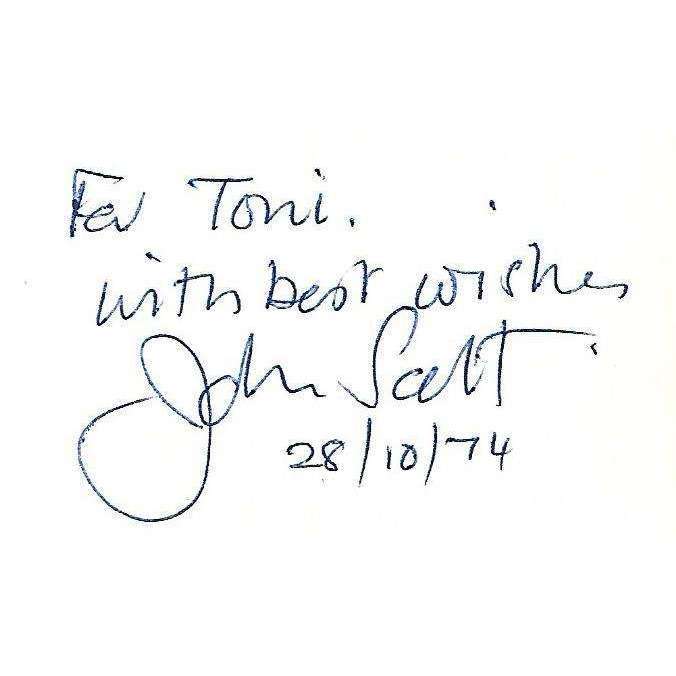 For Toni.
with best wishes
John
28/10/74